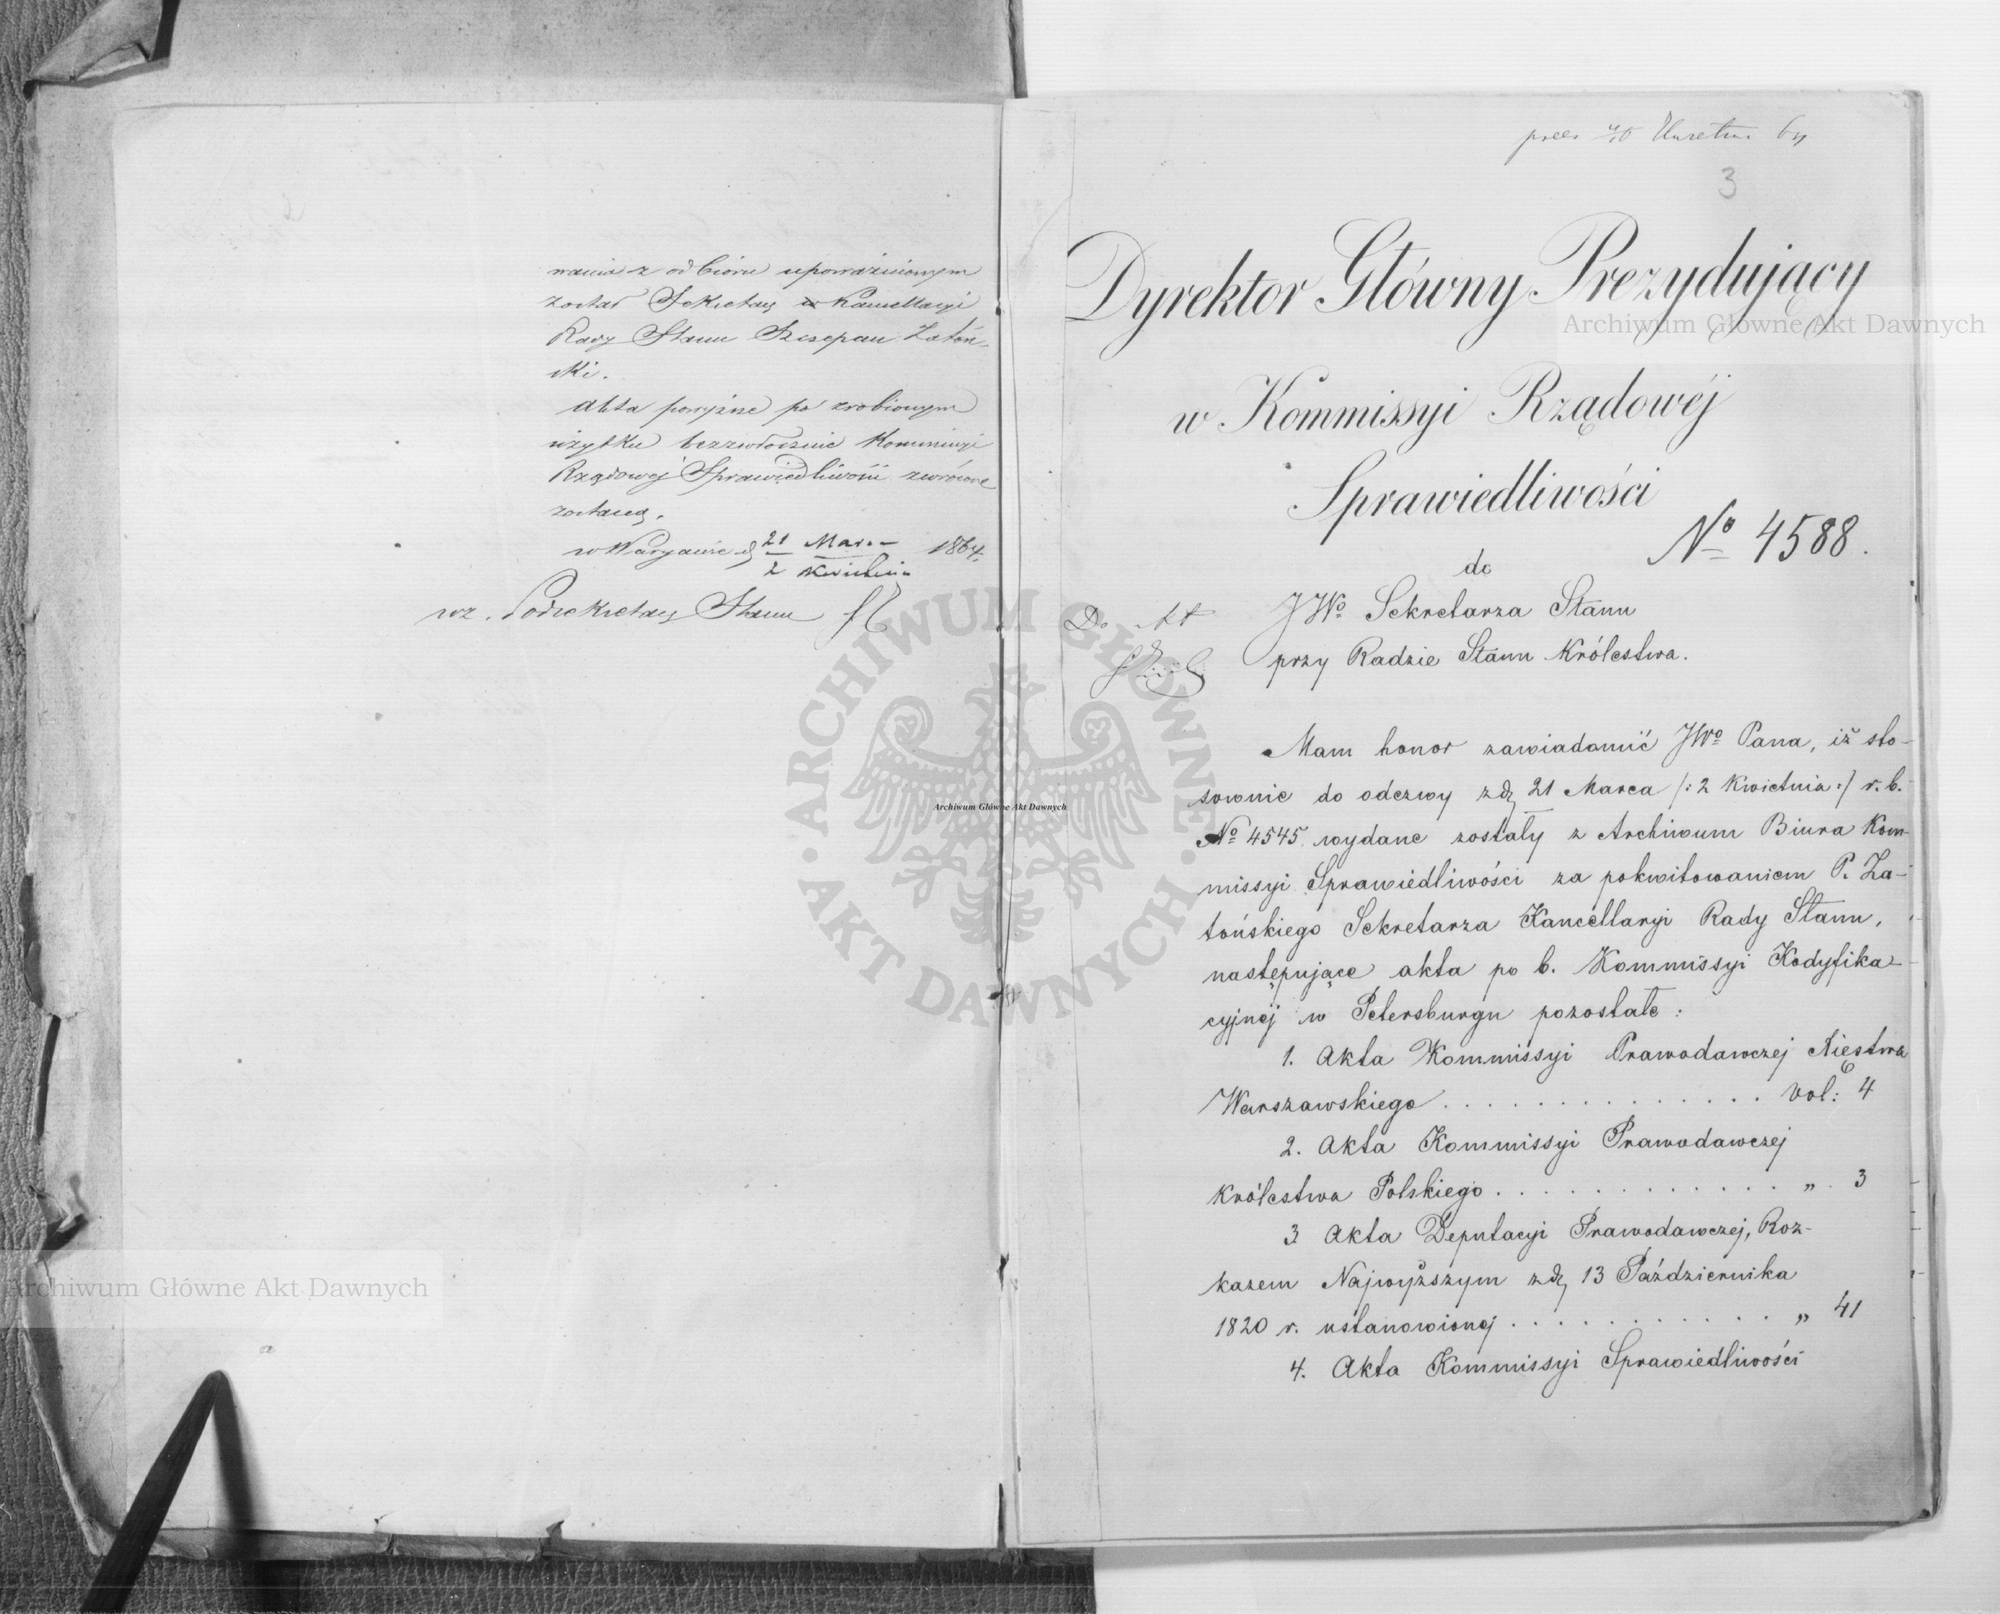 waniu z odbioru upoważnionym
został Sekretarz Kancellaryi
Rady Stanu Szczepan Zatoń-
ski.
Akta powyższe po zrobionym
użytku bezzwłocznie Kommissyi
Rządowej Sprawiedliwości zwrócone
zostaną.
w Warszawie d. 21 Marca 1864.
2 Kwietnia
wz. Podsekretarz Stanu
3
Dyrektor Główny Prezydujący
w Kommissyi Rządowéj
Sprawiedliwości
No 4588.
do
JWo Sekretarza Stanu
przy Radzie Stanu Królestwa.
Do Akt
Mam honor zawiadomić JWo Pana, iż sto-
sownie do odezwy z d. 21 Marca /: 2 Kwietnia :/ r. b.
No 4545 wydane zostały z Archiwum Biura Kom-
missyi Sprawiedliwości za pokwitowaniem P. Za-
tońskiego Sekretarza Kancellaryi Rady Stanu,
następujące akta po b. Kommissyi Kodyfika-
cyjnéj w Petersburgu pozostałe:
1. Akta Kommissyi Prawodawczej Xięstwa
Warszawskiego . . . . . . . . . . . . . . Vol: 4
2. Akta Kommissyi Prawodawczej
Królestwa Polskiego . . . . . . . . . . . . . „ 3
3. Akta Deputacyi Prawodawczej, Roz-
kazem Najwyższym z d. 13 Października
1820 r. ustanowionej . . . . . . . . . . . „ 41
4. Akta Kommissyi Sprawiedliwości
Archiwum Główne Akt Dawnych
Archiwum Główne Akt Dawnych
Archiwum Główne Akt Dawnych
ARCHIWUM GŁÓWNE · AKT DAWNYCH ·